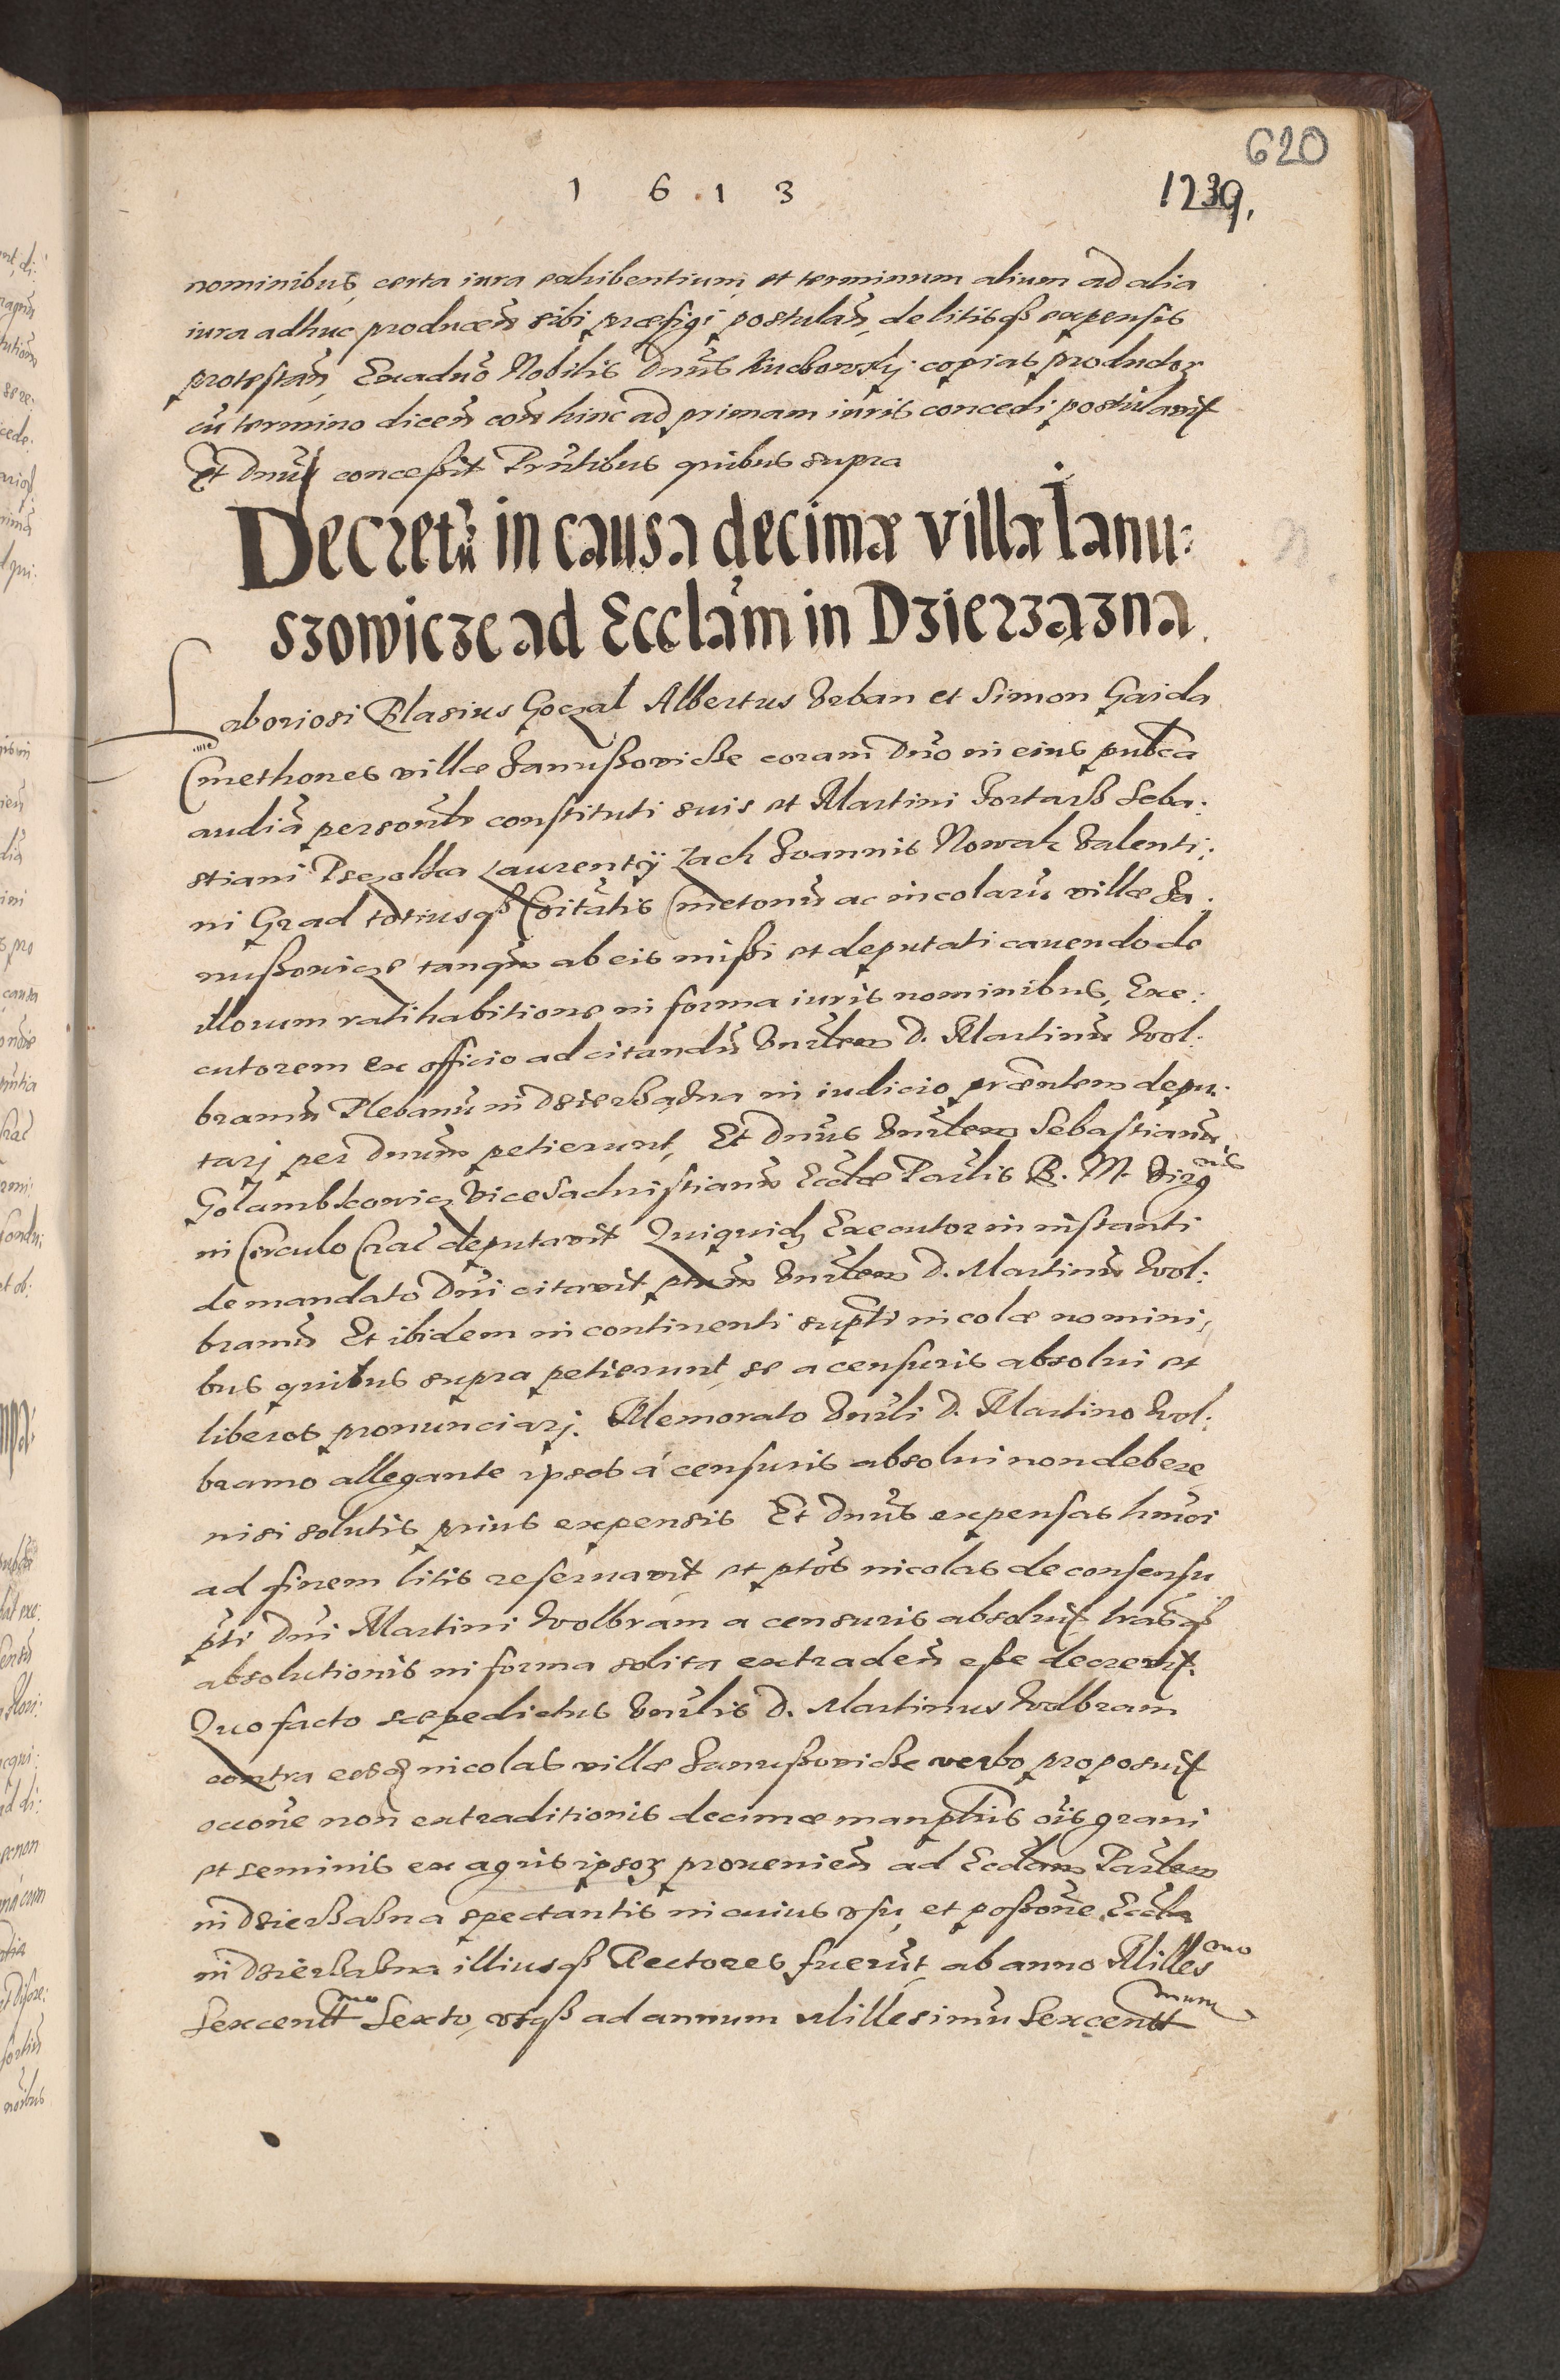 620
1 6 1 3
1239.
nominibus, certa iura exhibentium, et terminum alium ad alia
iura adhuc producen̄ sibi præfigi postulan̄, de litisqß expensis
protestan̄, Exaduo Nobilis Dnus copias productor
cu termino dicen̄ con̄ hinc ad primam iuris concedi postulauit
Et Dnus concessit Pntibus quibus supra
Decretu in causa decimæ villæ Ianu:
szowicze ad Ecclam in Dzierzazna.
Laboriosi Blasius Goczal Albertus Vrban et Simon Gaida
Cmethones villæ Janußowicße coram Dno in eius publca
audia personlr constituti suis et Martini Fortarß Seba:
stiani Laurentij Zach Joannis Nowak Valenti:
ni Grad totiusqß Coitatis Cmetonu ac incolaru villæ Ja:
nußowicze tanqm ab eis mißi et deputati cauendo de
illorum ratihabitione in forma iuris nominibus, Exe:
cutorem ex officio ad citandu Vnrlem D. Martinum Wol:
bramu Plebanu in Dzierßażna in iudicio præntem depu:
tarj per Dnum petierunt, Et Dnus Vnrlem Sebastianu
Golambkowicz ViceSachristianu Ecclæ Parlis B. M. Virgnis
in Circulo Crac deputauit Quiquid Executor in instanti
de mandato Dni citauit ptum Vnrlem D. Martinu Wol:
bramu Et ibidem in continenti supti incolæ nomini:
bus quibus supra petierunt, se a censuris absolui et
liberos pronunciarj. Memorato Vnrli D. Martino Wol:
bramo allegante ipsos á censuris absolui non debere
nisi solutis prius expensis Et Dnus expensas hmoi
ad finem litis reseruauit et ptos incolas de consensu
pti Dni Martini Wolbram a censuris absoluit, lrasqß
absolutionis in forma solita extraden̄ eße decreuit.
Quo facto sæpedictus Vnrlis D. Martinus Wolbram
contra eosd incolas villæ Janußowicße verbo proposuit
occone non extraditionis decimæ manplis ois grani
et seminis ex agris ipsor prouenien̄ ad Ecclam Parlem
in Dzierßaßna spectantis in cuius vsu, et poßone Eccla
in Dzierßaßna illiusqß Rectores fuerut ab anno Millesimo
Sexcentmo Sexto, vsqß ad annum Millesimu Sexcentmum